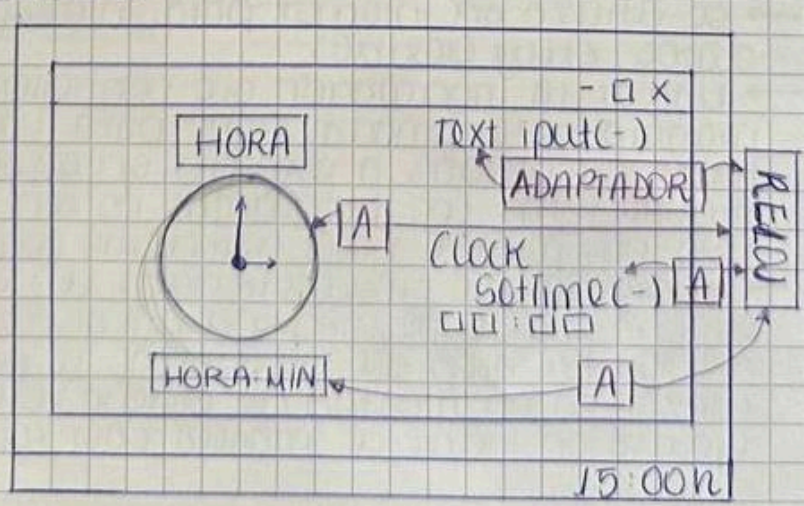 - □ X
HORA
Text iput(-)
ADAPTADOR
RELOJ
A
CLOCK
SetTime(-)
A
□□:□□
HORA-MIN
A
15:00h